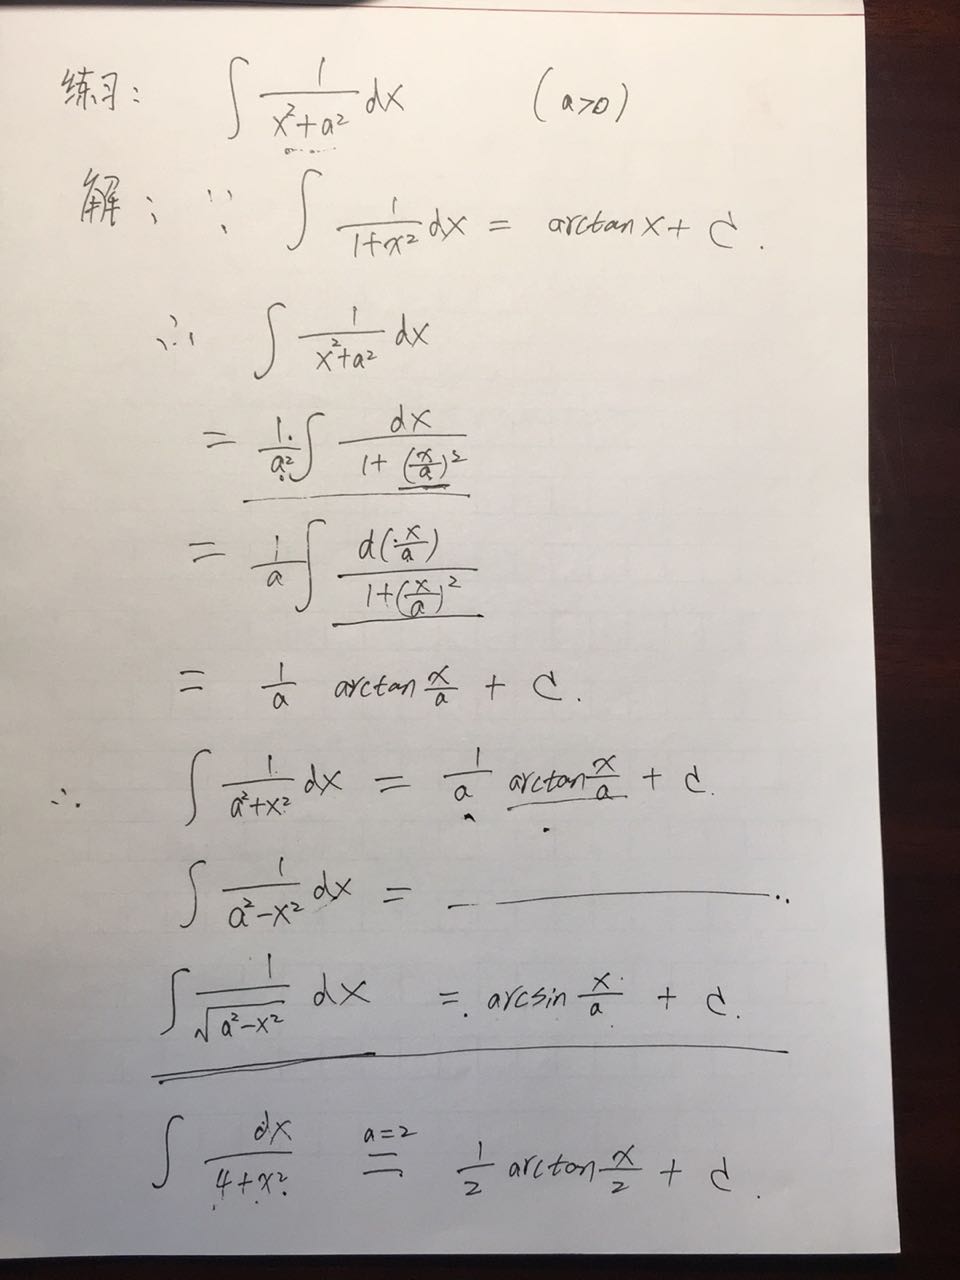 练习: ∫ 1/(x²+a²) dx (a>0)
解: ∵ ∫ 1/(1+x²) dx = arctan x + C.
∴ ∫ 1/(x²+a²) dx
= 1/a² ∫ dx/(1+(x/a)²)
= 1/a ∫ d(x/a)/(1+(x/a)²)
= 1/a arctan x/a + C.
∴ ∫ 1/(a²+x²) dx = 1/a arctan x/a + C.
∫ 1/(a²-x²) dx =
∫ 1/√(a²-x²) dx = arcsin x/a + C.
∫ dx/(4+x²) a=2 = 1/2 arctan x/2 + C.